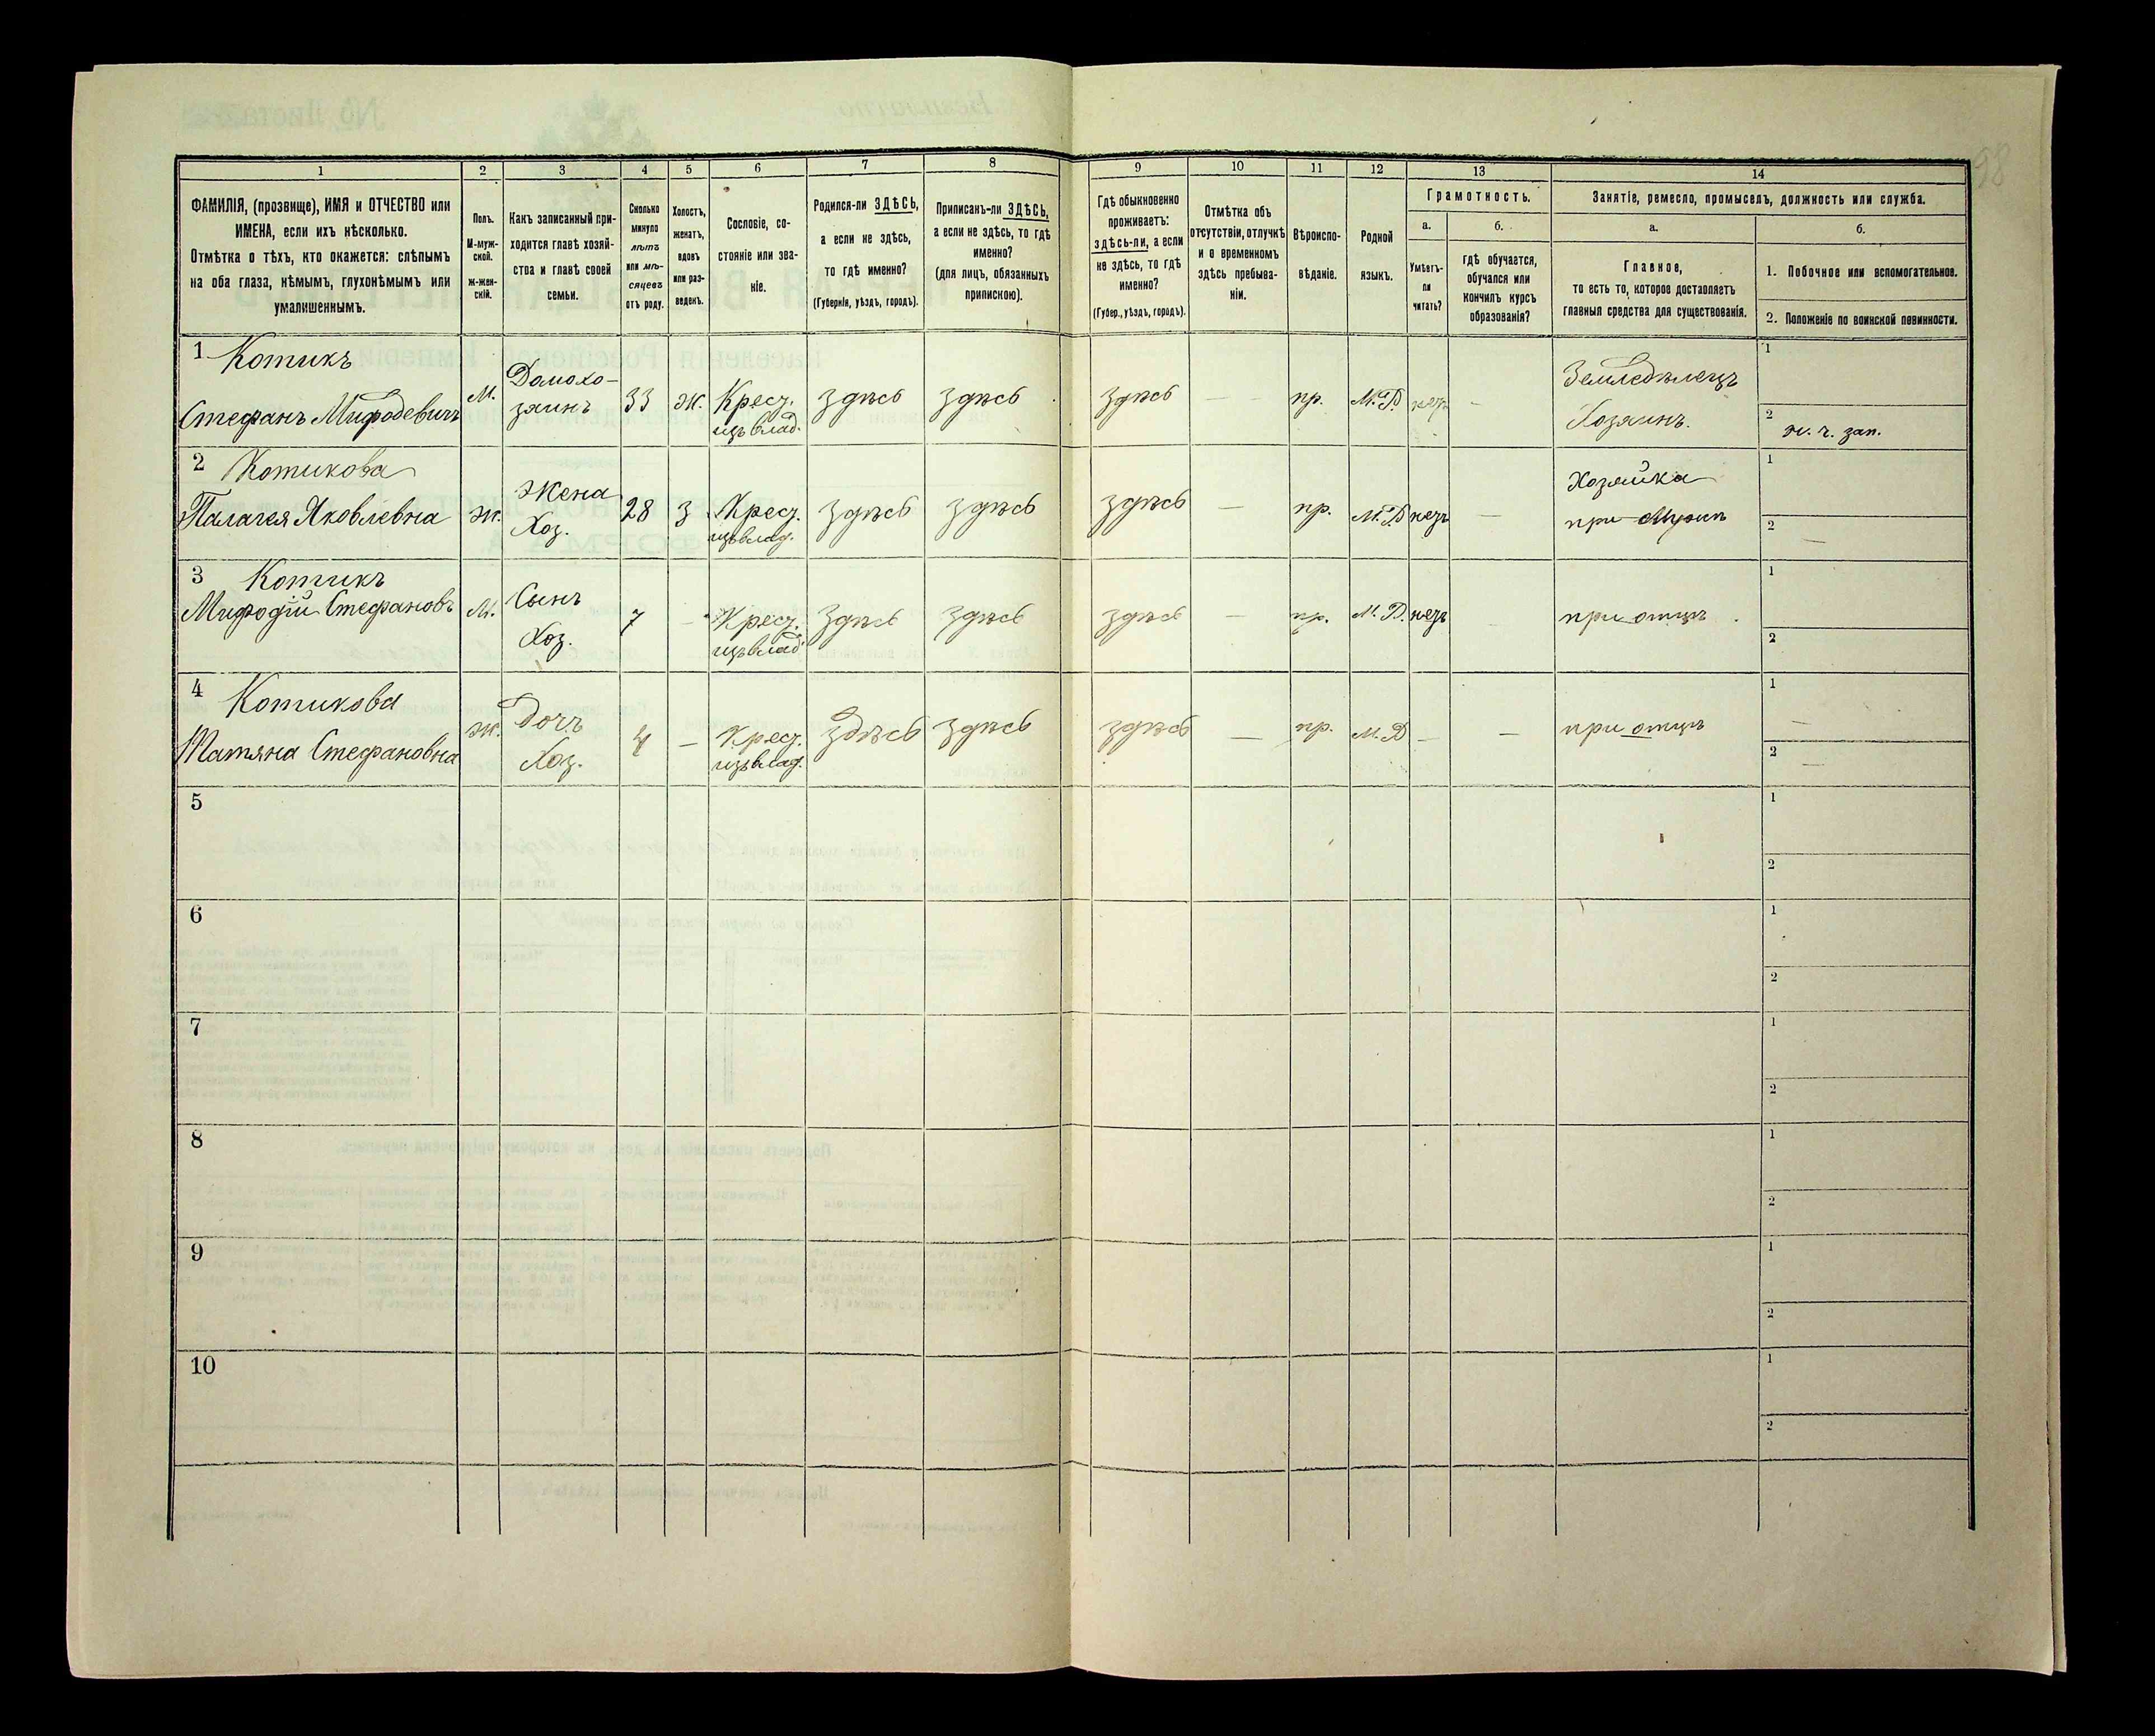 1 2 3 4 5 6 7 8 9 10 11 12 13 14
ФАМИЛІЯ, (прозвище), ИМЯ и ОТЧЕСТВО или
ИМЕНА, если ихъ нѣсколько.
Отмѣтка о тѣхъ, кто окажется: слѣпымъ
на оба глаза, нѣмымъ, глухонѣмымъ или
умалишеннымъ.
Полъ.
М-муж-
ской.
ж-жен-
скій.
Какъ записанный при-
ходится главѣ хозяй-
ства и главѣ своей
семьи.
Сколько
минуло
лѣтъ
или мѣ-
сяцевъ
отъ роду.
Холостъ,
женатъ,
вдовъ
или раз-
веденъ.
Сословіе, со-
стояніе или зва-
ніе.
Родился-ли ЗДѢСЬ,
а если не здѣсь,
то гдѣ именно?
(Губернія, уѣздъ, городъ).
Приписанъ-ли ЗДѢСЬ,
а если не здѣсь, то гдѣ
именно?
(для лицъ, обязанныхъ
припискою).
Гдѣ обыкновенно
проживаетъ:
здѣсь-ли, а если
не здѣсь, то гдѣ
именно?
(Губер., уѣздъ, городъ).
Отмѣтка объ
отсутствіи, отлучкѣ
и о временномъ
здѣсь пребыва-
ніи.
Вѣроиспо-
вѣданіе.
Родной
языкъ.
Грамотность.
а.
Умѣетъ-
ли
читать?
б.
гдѣ обучается,
обучался или
кончилъ курсъ
образованія?
Занятіе, ремесло, промыселъ, должность или служба.
а.
Главное,
то есть то, которое доставляетъ
главныя средства для существованія.
б.
1. Побочное или вспомогательное.
2. Положеніе по воинской повинности.
1 Котикъ
Стефанъ Мифодевичъ
М.
Домохо-
зяинъ
33 Ж. Крест.
изъ влад.
здѣсь здѣсь здѣсь — — пр. М.Р. нег. —
Земледѣлецъ
Хозяинъ.
1
2
2 Котикова
Палагея Яковлевна
Ж.
Жена
Хоз.
28 З Крест.
изъ влад.
здѣсь здѣсь здѣсь — пр. М.Р. нетъ —
Хозяйка
при Мужѣ
1
2 —
3 Котикъ
Мифодій Стефановъ
М.
Сынъ
Хоз.
7 — Крест.
изъ влад.
здѣсь здѣсь здѣсь — пр. М.Р. нетъ
при отцѣ
1
2
4 Котикова
Татяна Стефановна
Ж.
Дочъ
Хоз.
4 — Крест.
изъ влад.
здѣсь здѣсь здѣсь — пр. М.Р. — —
при отцѣ
1 —
2 —
5
1
2
6
1
2
7
1
2
8
1
2
9
1
2
10
1
2
98